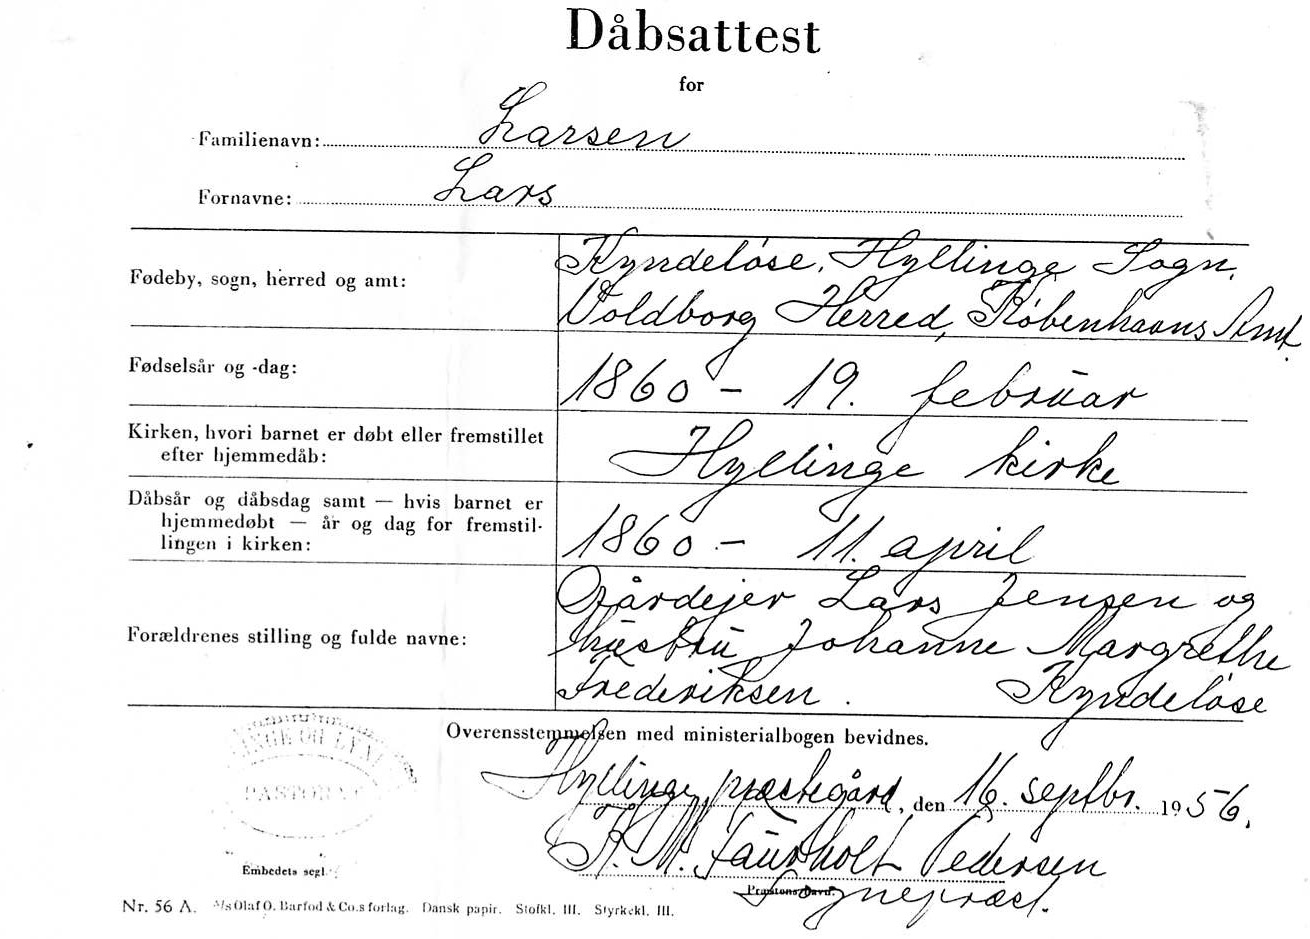 Dåbsattest
for
Familienavn: Larsen
Fornavne: Lars
Fødeby, sogn, herred og amt: Kyndeløse, Hyllinge Sogn,
Voldborg Herred, Københavns Amt.
Fødselsår og -dag: 1860 - 19. februar
Kirken, hvori barnet er døbt eller fremstillet
efter hjemmedåb: Hyllinge kirke
Dåbsår og dåbsdag samt — hvis barnet er
hjemmedøbt — år og dag for fremstil-
lingen i kirken: 1860 - 11. april
Forældrenes stilling og fulde navne: Gårdejer Lars Jensen og
hustru Johanne Margrethe
Frederiksen. Kyndeløse
Overensstemmelsen med ministerialbogen bevidnes.
Hyllinge præstegård, den 16. septbr. 1956.
K. M. Taurholt Pedersen
Præstens navn.
Sognepræst.
PASTORAT
Embedets segl.
Nr. 56 A. A/s Olaf O. Barfod & Co.s forlag. Dansk papir. Stofkl. III. Styrkekl. III.